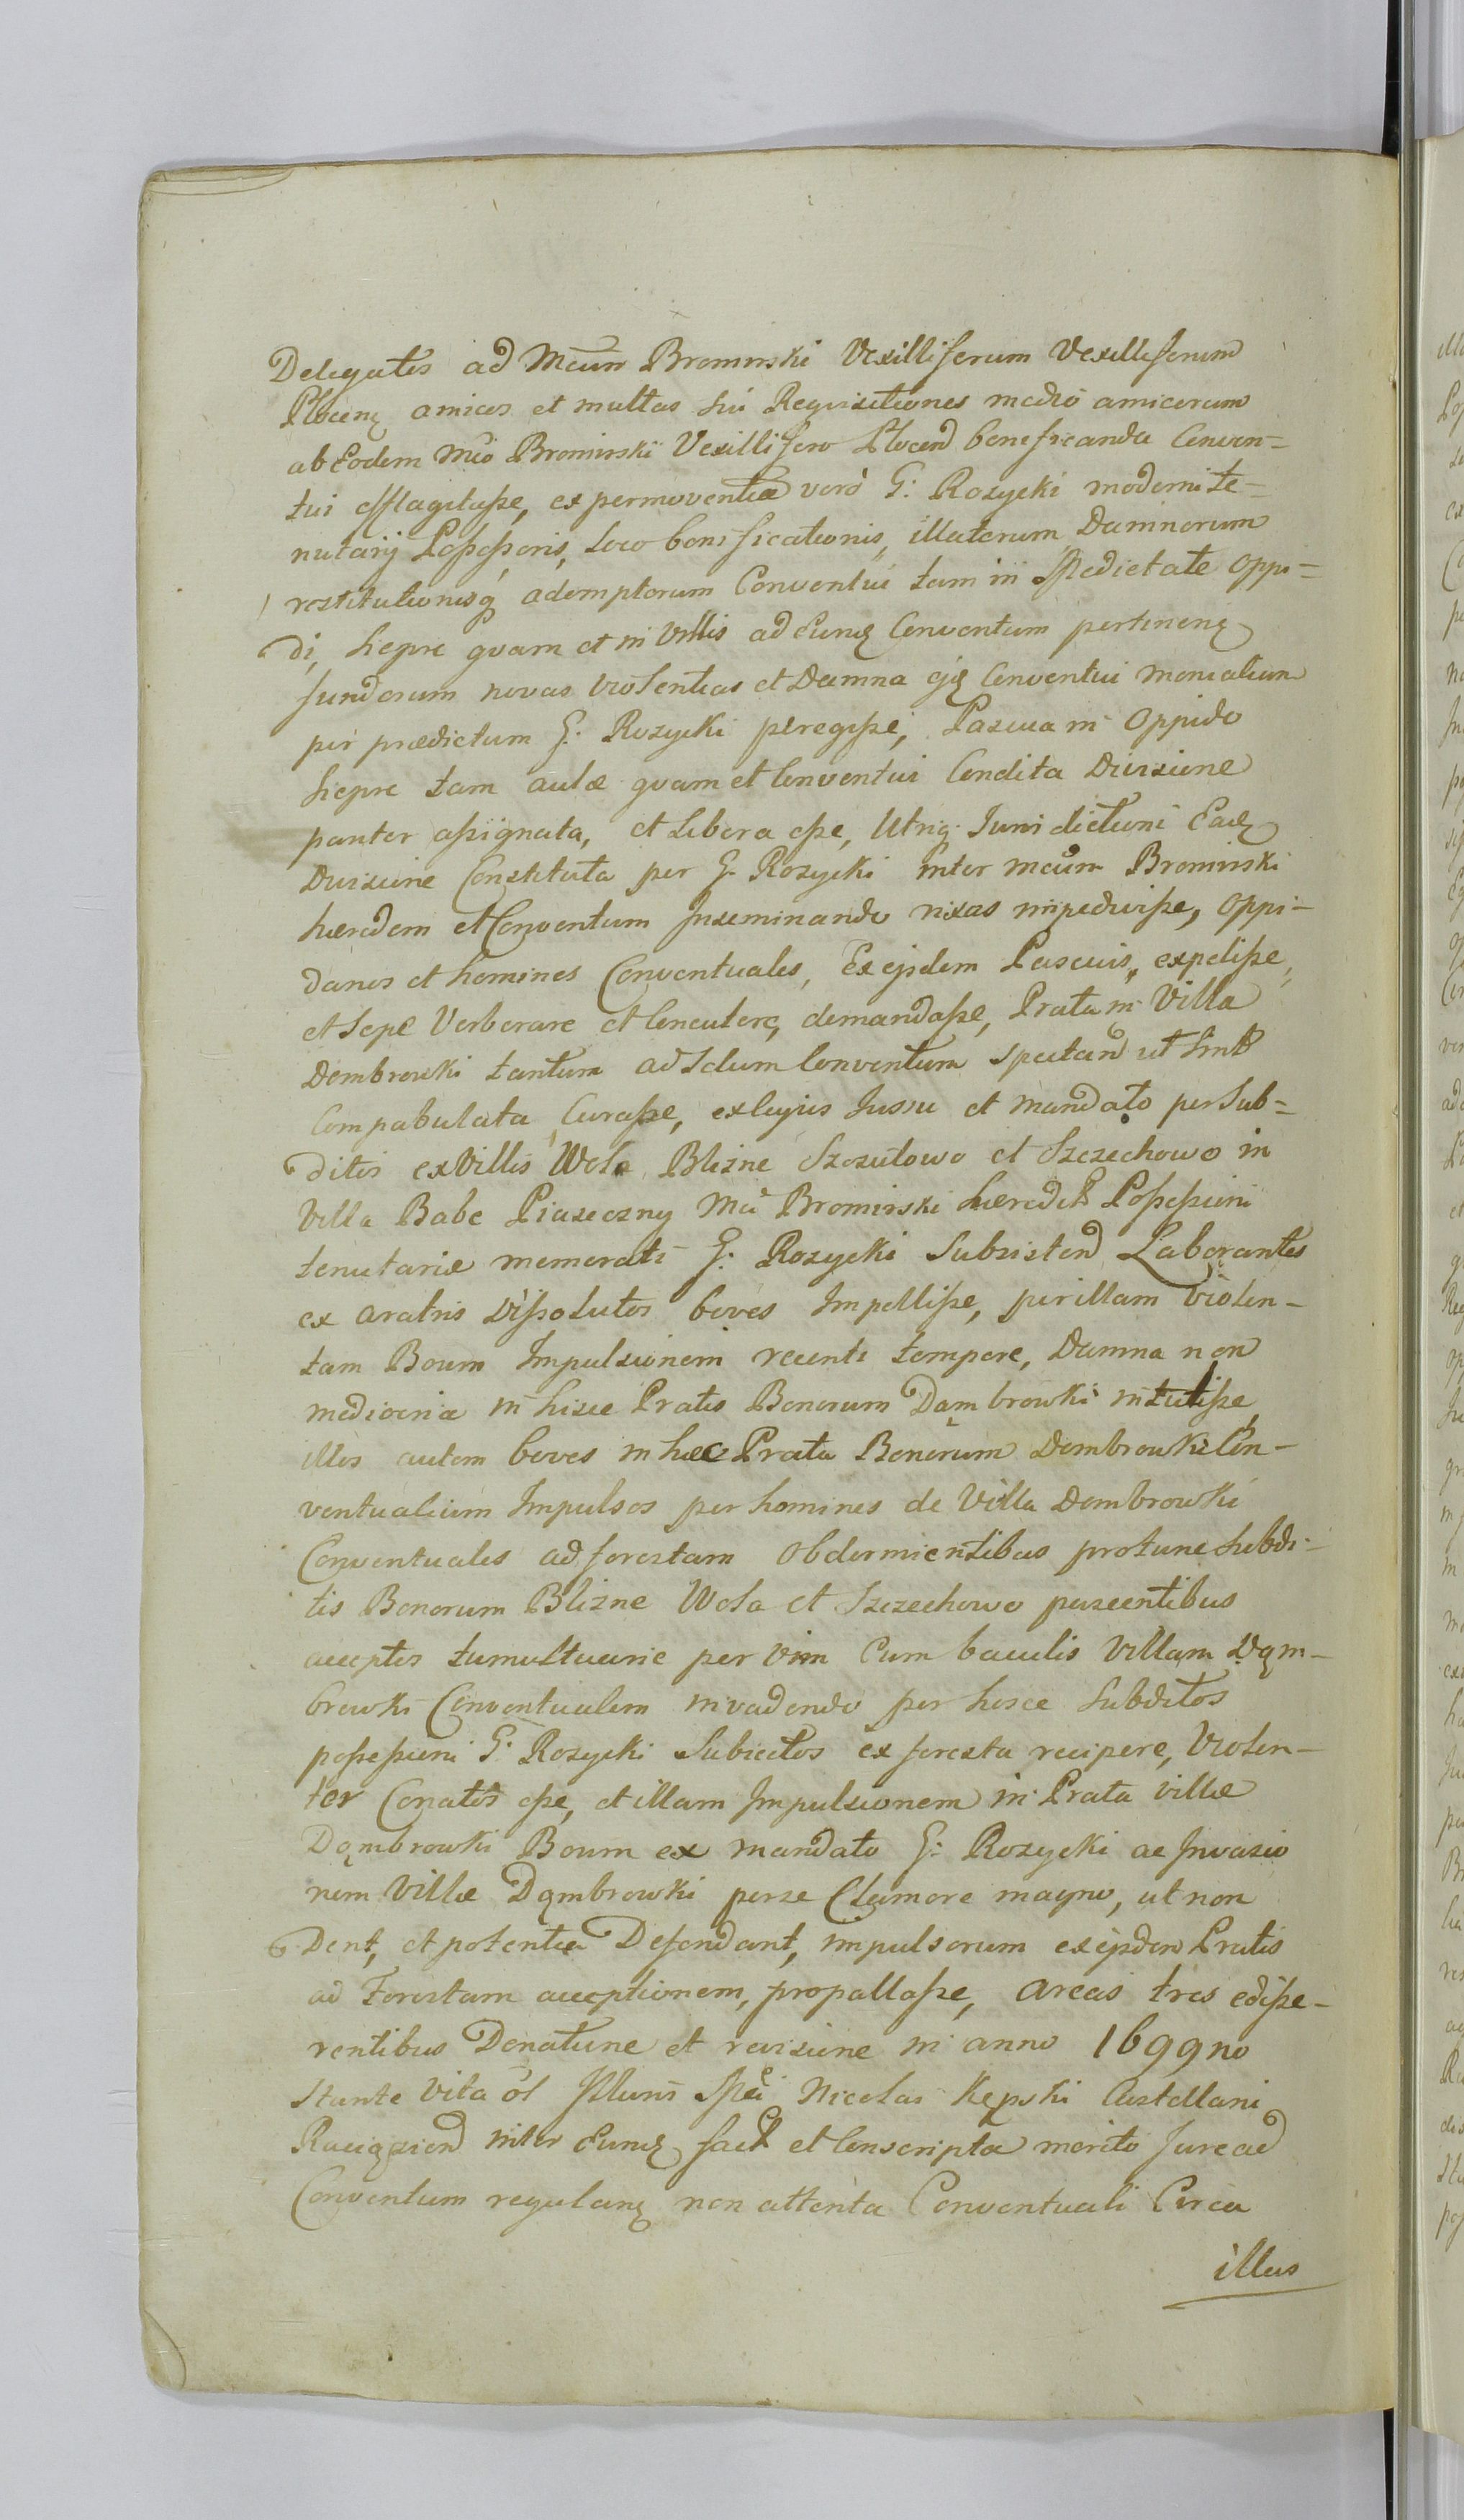 Delegatos ad Mcum Bromirski Vexilliferum Vexilliferum
Plocenę amicos et multas sui Requisitiones medio amicorum
ab Eodem Mco Bromirski Vexillifero Plocen beneficanda Conven=
tui efflagitasse, ex permoventia vero G: Rozycki moderni te=
nutarij Possessoris, loco bonificationis, illatorum Damnorum
restitutionisq ademptorum Conventui tam in Medietate Oppi=
di, Siepre quam et in Villis ad Eund Conventum pertinenę
fundorum novas violentias et Damna ejq Conventui monialium
per prædictum G: Rozycki peregisse, Pascua in Oppido
Siepre tam aulæ quam et Conventui Condita Divisione
pariter assignata, et Libera esse, Utriq Jurisdictioni Eadę
Divisione Constituta per G. Rozycki inter Mcum Bromirski
hæredem et Conventum Inseminando rixas impedivisse, Oppi-
danos et homines Conventuales, Ex ejsdem Pascuis, expelisse,
et Sepe Verberare et Concutere, demandasse, Prata in Villa
Dombrowki tantum ad Solum Conventum spectand ut sint
Compabulata Curasse, ex cujus Jussu et mandato per Sub=
ditos ex Villis Wola Blizne Szczutowo et Szczechowo in
Villa Babe Piaseczny Mci Bromirski hæredit Possessioni
tenutariæ memorati G: Rozycki Subsistend Laborantes
ex aratris Dissolutos boves Impellisse, per illam violen-
tam Boum Impulsionem recenti tempore, Damna non
mediocria in hisce Pratis Bonorum Dąmbrowki intulisse
illos autem boves in hæc Prata Bonorum Dombrowki Con-
ventualium Impulsos per homines de Villa Dombrowki
Conventuales ad forestam obdormientibus pro tunc Subdi-
tis Bonorum Blizne Wola et Szczechowo pascentibus
acceptos tumultuarie per vim Cum baculis Villam Dąm-
browki Conventualem invadendo per hosce Subditos
possessioni G: Rozycki Subiectos ex foresta recipere, Violen-
ter Conatos esse, et illam Impulsionem in Prata villæ
Dąmbrowki Boum ex mandato G: Rozycki ac Invasio
nem Villæ Dąmbrowki per se Clamore magno, ut non
Dent, et potentia Defendant, impulsorum ex ejsdem Pratis
ad Forestam acceptionem, propallasse, areas tres edisse-
rentibus Donatione et revisione in anno 1699no
Stante Vita ol Mci Nicolai Kępski Castellani
Raciązien inter Eund fact et Conscripta merito Jure ad
Conventum regularę non attenta Conventuali Circa
illas